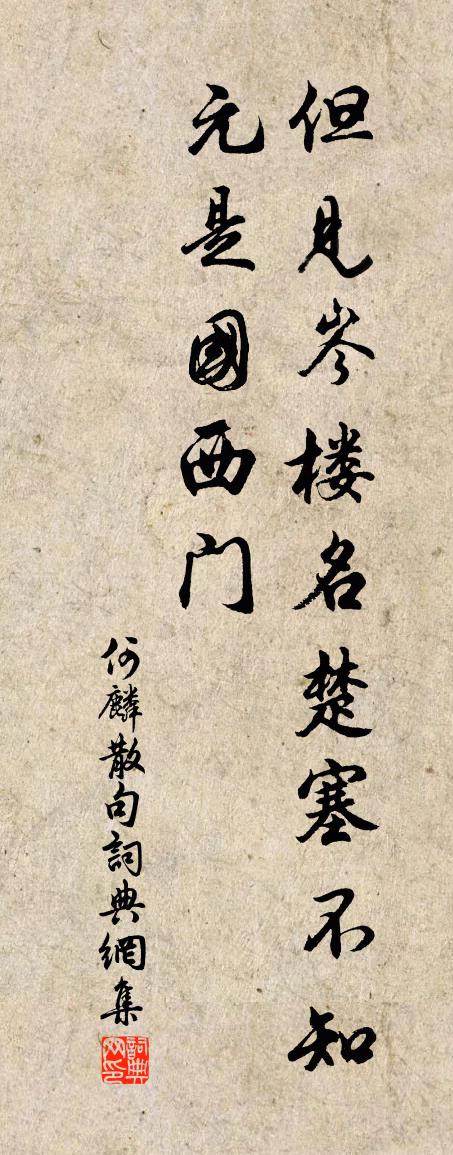 但见岑楼名楚塞不知
元是國西门
何麟散句詞典網集
詞典
网印